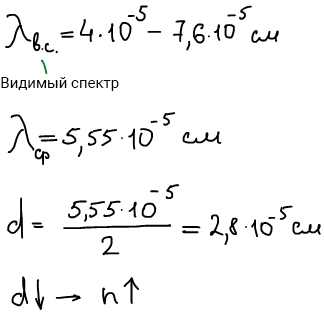 λв.с. = 4·10⁻⁵ – 7,6·10⁻⁵ см
Видимый спектр
λср = 5,55·10⁻⁵ см
d = 5,55·10⁻⁵ / 2 = 2,8·10⁻⁵ см
d↓ → n↑